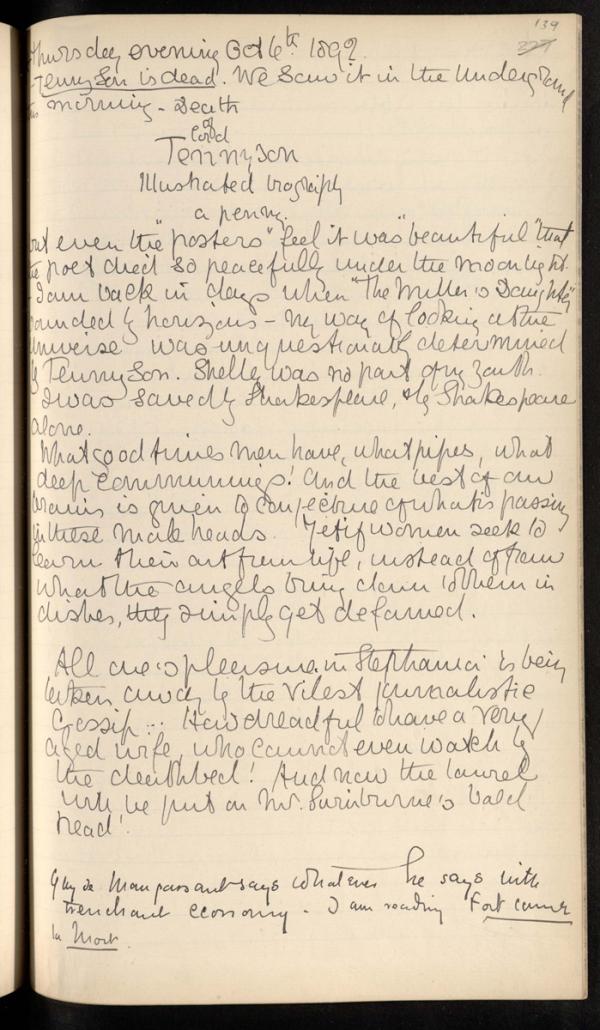 139
327
Thursday evening Oct 6th 1892.
Tennyson is dead. We saw it in the Underground
this morning - Death
of
Lord
Tennyson
Illustrated biography
a penny.
but even the "posters" feel it was "beautiful" that
the poet died so peacefully under the moonlight.
I am back in days when "The Miller's Daughter"
bounded my horizons - my way of looking at the
Universe was unquestionably determined
by Tennyson. Shelley was no part of my youth.
I was saved by Shakespeare, by Shakespeare
alone.
What good times men have, what pipes, what
deep communings! And the best of our
brains is given to conjecture of what is passing
in these male heads. Yet if women seek to
learn their art from life, instead of from
what the angels bring down to them in
dishes, they simply get defamed.
All one's pleasure in Stephania is being
taken away by the vilest journalistic
Gossip... How dreadful to have a very
aged wife, who cannot even watch by
the deathbed! And now the laurel
will be put on Mr. Swinburne's bald
head!
Guy de Maupassant says whatever he says with
trenchant economy - I am reading Fort comme
la Mort.